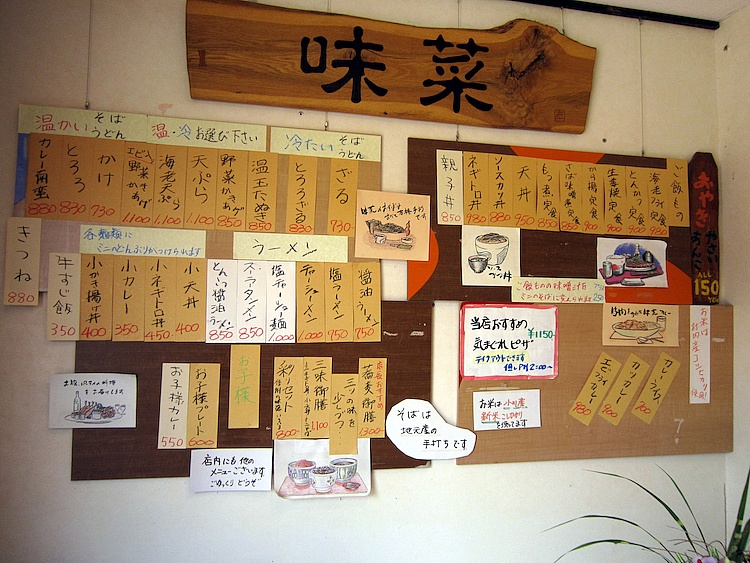 味菜
温かい そば うどん
温・冷 お選び下さい
冷たい そば うどん
ざる 730
とろろざる 830
温玉たぬき 850
野菜かきあげ 850
天ぷら 1,100
海老天ぷら 1,100
かけ 730
とろろ 830
カレー南蛮 880
きつね 880
各麺類に
ミニのどんぶりがつけられます
牛すじ飯 350
小かき揚げ丼 400
小カレー 350
小ネギトロ丼 450
小天丼 400
ラーメン
醤油ラーメン 750
塩ラーメン 750
チャーシューメン 1,000
塩チャーシュー麺 1,000
スーラータンメン 850
とんこつ醤油ラーメン 850
お子様
お子様プレート 600
お子様カレー 550
蕎麦御膳 1300
三つの味を少しづつ
三味御膳 1,100
店内にも他の
メニューございます
ごゆっくりどうぞ
そばは
地元産の
手打ちです
ご飯もの
海老フライ定食 980
とんかつ定食 900
生姜焼定食 900
から揚げ定食 900
さば味噌煮定食 850
もつ煮定食 850
天丼 950
ソースカツ丼 880
ネギトロ丼 930
親子丼 850
ソースカツ丼
おやき
やさい
あんこ
ALL
150
当店おすすめ ¥1150
気まぐれピザ
テイクアウトできます
但しPM2:00〜
お米は 小川産
新米 こしひかり
を使ってます
カレーライス 700
カツカレー 900
エビフライカレー 980